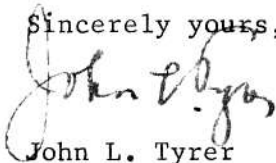 Sincerely yours,
John L Tyrer
John L. Tyrer